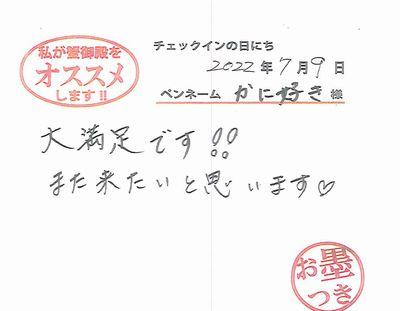 私が蟹御殿を
オススメ
します!!
チェックインの日にち
2022年7月9日
ペンネーム かに好き 様
大満足です!!
また来たいと思います♡
お墨
つき